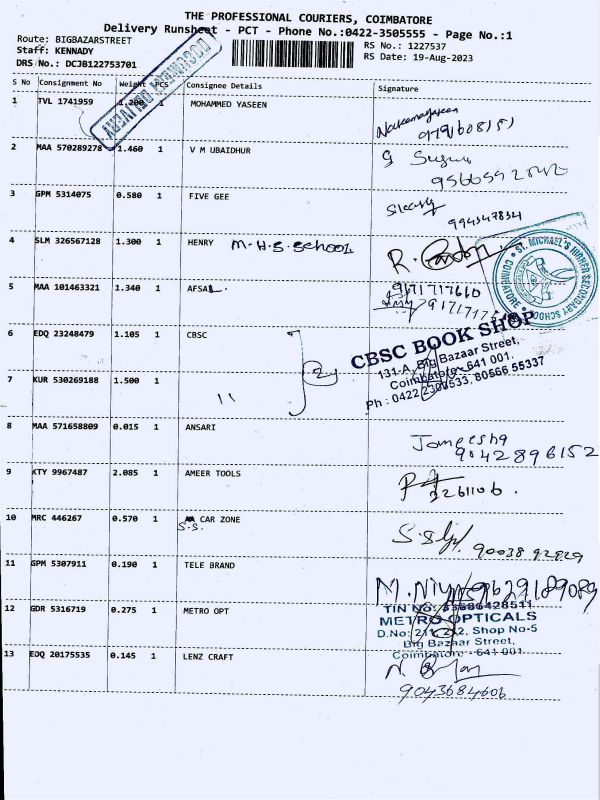 THE PROFESSIONAL COURIERS, COIMBATORE
Delivery Runsheet - PCT - Phone No.:0422-3505555 - Page No.:1
Route: BIGBAZARSTREET
RS No.: 1227537
Staff: KENNADY
RS Date: 19-Aug-2023
DRS No.: DCJB122753701
DOCUMENT DELIVERY
S No Consignment No Weight PCS Consignee Details Signature
1 TVL 1741959 1.200 1 MOHAMMED YASEEN
2 MAA 570289278 1.460 1 V M UBAIDHUR
3 GPM 5314075 0.580 1 FIVE GEE
4 SLM 326567128 1.300 1 HENRY M.H.S.SCHOOL
ST. MICHAEL'S HIGHER SECONDARY SCHOOL COIMBATORE
5 MAA 101463321 1.340 1 AFSAL
9171717660
6 EDQ 23248479 1.105 1 CBSC
2
CBSC BOOK SHOP
131-A, Big Bazaar Street,
Coimbatore-641 001.
Ph : 0422 2300533, 80566 55337
7 KUR 530269188 1.500 1 "
8 MAA 571658809 0.015 1 ANSARI
Jameesha
9042896152
9 KTY 9967487 2.085 1 AMEER TOOLS
10 MRC 446267 0.570 1 CAR ZONE
S.S.
90038 92829
11 GPM 5307911 0.190 1 TELE BRAND
9629189089
12 GDR 5316719 0.275 1 METRO OPT
TIN No: 33686428511
METRO OPTICALS
D.No: 211, 212, Shop No-5
Big Bazaar Street,
Coimbatore - 641 001
13 EDQ 20175535 0.145 1 LENZ CRAFT
9043684606